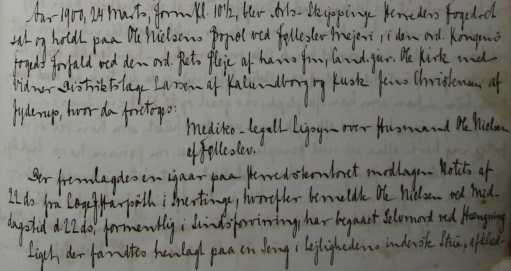 Aar 1900, 24 Marts, Form. Kl. 10½, blev Arts-Skippinge Herreders Fogedret
sat og holdt paa Ole Nielsens Bopæl ved Føllesløv Mejeri, i den ord. Kongens
Fogeds Forfald ved den ord. Rets Pleje af hans fm, cand. jur. Ole Kirk med
Vidner Distriktslæge Larsen af Kalundborg og Kusk Jens Christensen af
Jyderup, hvor da foretoges:
Mediko-legalt Ligsyn over Husmand Ole Nielsen
af Følleslev.
Der fremlagdes en igaar paa Herredskontoret modtagen Notits af
22 ds. fra Læge Harpøth i Snertinge, hvorefter bemeldte Ole Nielsen ved Mid-
dagstid d. 22 ds, formentlig i Sindsforvirring, har begaaet Selvmord ved Hængning
Liget, der fandtes henlagt paa en Seng i Lejlighedens inderste Stue, afklæd-